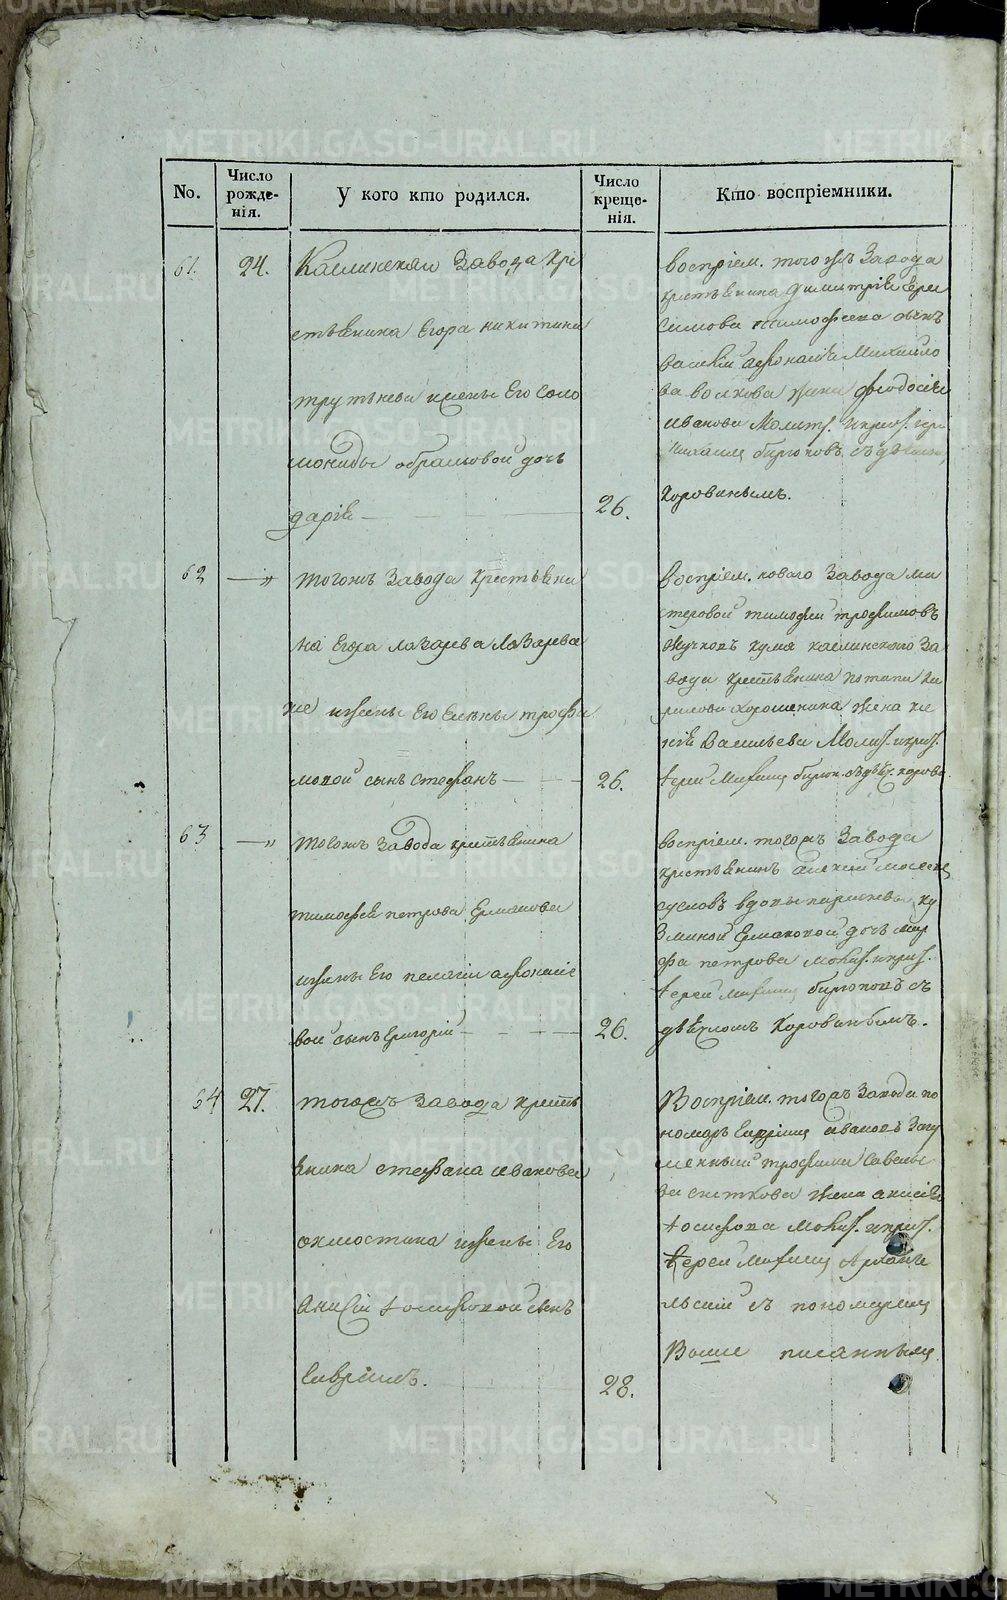 No.
Число рожде-
нія.
У кого кто родился.
Число креще-
нія.
Кто воспріемники.
61.
24.
Каслинскаго Завода кре
стьянина Егора никитина
трутнева и жены Его Соло
мониды
дочь
дарія
26.
воспріем. тогожъ Завода
крестьянина димитрія
симова тимофеева сынъ
василій афонасія Михаило
ва волкова жена феодосія
иванова Молитв. и крест. іере
михаилъ бирюковъ съ дьячком
коровинымъ.
62
—„
тогожъ Завода крестьяни
на Егора лазарева Лазарева
и жены Его Елены трофи
мовой сынъ стефанъ
26.
Воспріем. Завода ма
стеровой тимофей трофимовъ
кума каслинского За
вода крестьянина потапа ки
рилова жена
Васильева Молит. и крест.
іерей Михаилъ бирюк. съ дьяч. корови
63
—„
тогожъ Завода крестьянина
тимофея петрова Ермакова
и жены Его пелагіи афонасіе
вой сынъ григорій
26.
воспріем. тогожъ Завода
крестьянинъ алексей моисеев
сусловъ вдовы ку
зминой Ермаковой дочь мар
фа петрова молит. и крест.
іерей михаилъ бирюковъ съ
дьячкомъ Коровинымъ.
64
27.
тогожъ Завода кресть
янина стефана иванова
и жены Его
Анисіи іосифовой сынъ
Гавріилъ.
28.
Воспріем. тогожъ Завода по
номарь Гавріилъ ивановъ
трофима Савелье
ва жена анисія
іосифова молит. и крест.
іерей михаилъ Архане
льскій съ пономаремъ
Выше писаннымъ
METRIKI.GASO-URAL.RU